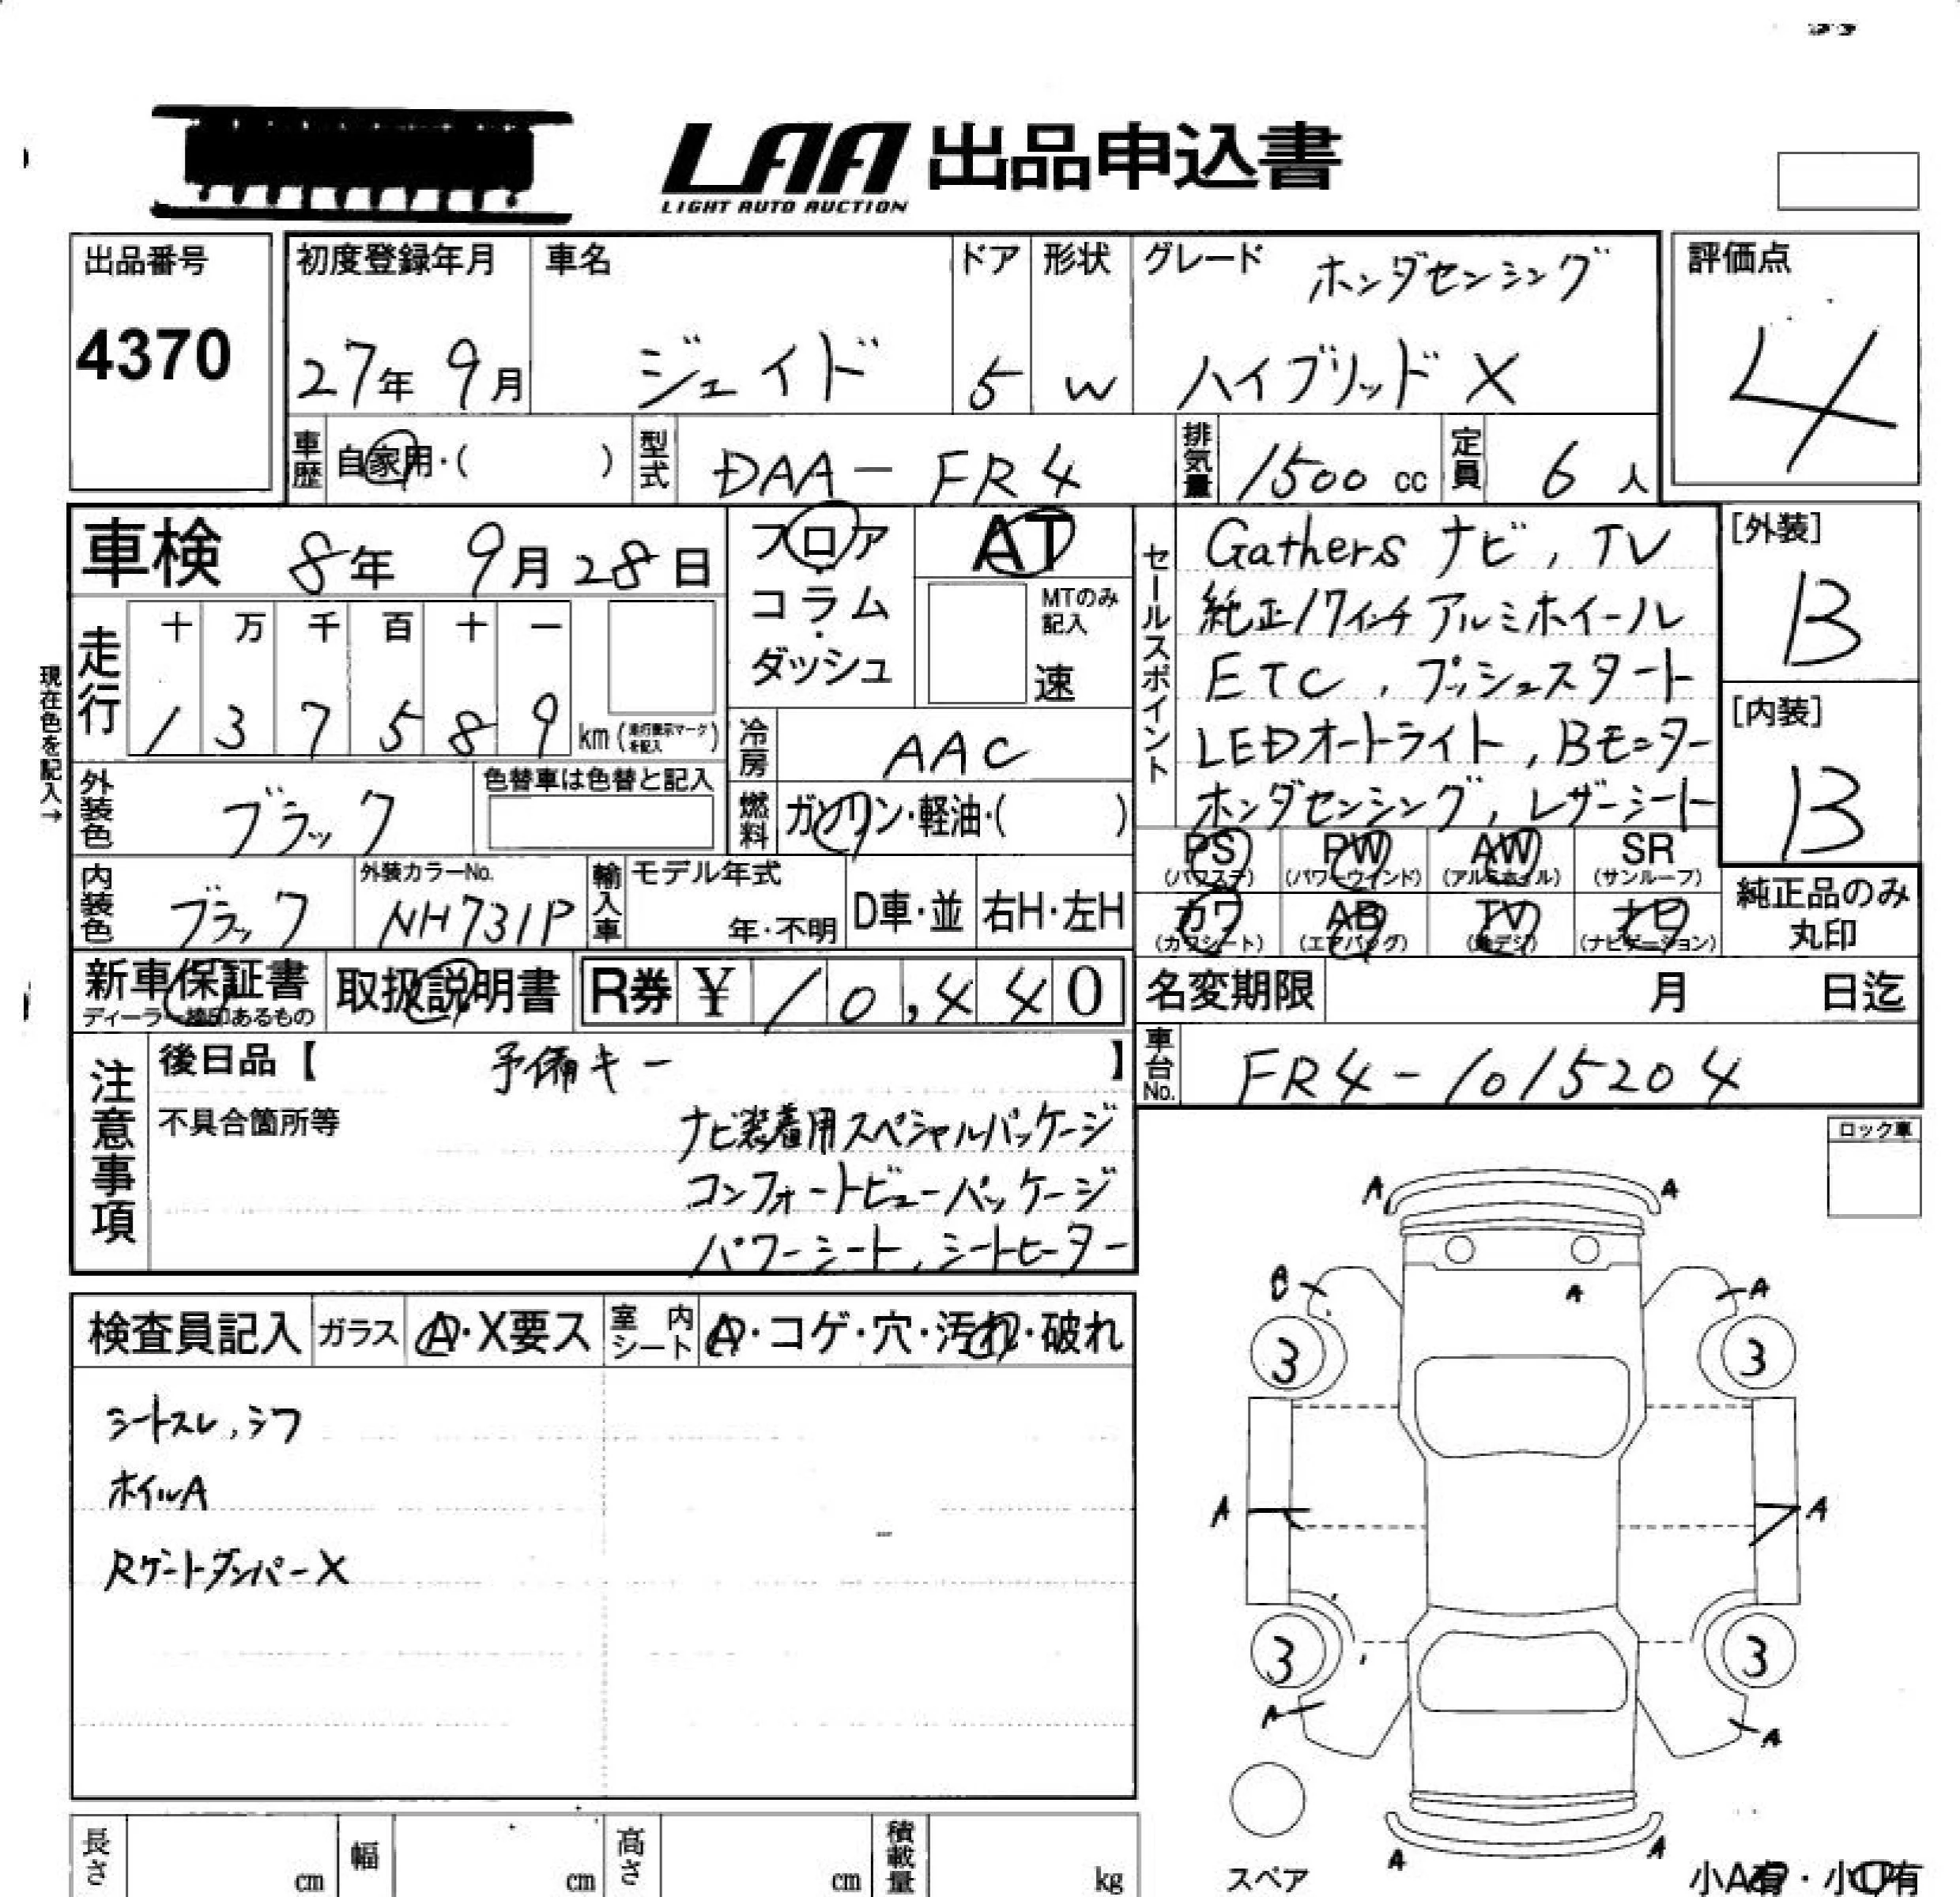 LAA 出品申込書
LIGHT AUTO AUCTION
出品番号
4370
初度登録年月
27年 9月
車名
ジェイド
ドア
5
形状
W
グレード
ホンダセンシング
ハイブリッド X
評価点
4
車歴
自家用・( )
型式
DAA-FR4
排気量
1500 cc
定員
6 人
車検 8年 9月 28日
フロア・コラム・ダッシュ
AT
MTのみ記入
速
セールスポイント
Gathers ナビ, TV
純正17インチ アルミホイール
ETC, プッシュスタート
LEDオートライト, Bモニター
ホンダセンシング, レザーシート
[外装]
B
[内装]
B
現在色を記入→
走行
十 万 千 百 十 一
1 3 7 5 8 9 km(走行表示マークを記入)
冷房
AAC
外装色
ブラック
色替車は色替と記入
燃料
ガソリン・軽油・( )
内装色
ブラック
外装カラーNo.
NH731P
輸入車
モデル年式
年・不明
D車・並
右H・左H
PS
(パワステ)
PW
(パワーウインド)
AW
(アルミホイル)
SR
(サンルーフ)
カワ
(カワシート)
AB
(エアバッグ)
TV
(地デジ)
ナビ
(ナビゲーション)
純正品のみ
丸印
新車保証書
ディーラー捺印あるもの
取扱説明書
R券 ¥ 10,440
名変期限 月 日迄
車台No.
FR4-1015204
注意事項
後日品【 予備キー 】
不具合箇所等
ナビ装着用スペシャルパッケージ
コンフォートビューパッケージ
パワーシート, シートヒーター
ロック車
検査員記入
ガラス
A・X要ス
室内シート
A・コゲ・穴・汚れ・破れ
シートスレ, シワ
ホイルA
Rゲートダンパー X
A A
A A
A
3 3
A A
3 3
A A
A A
スペア
小A有・小凹有
長さ cm
幅 cm
高さ cm
積載量 kg